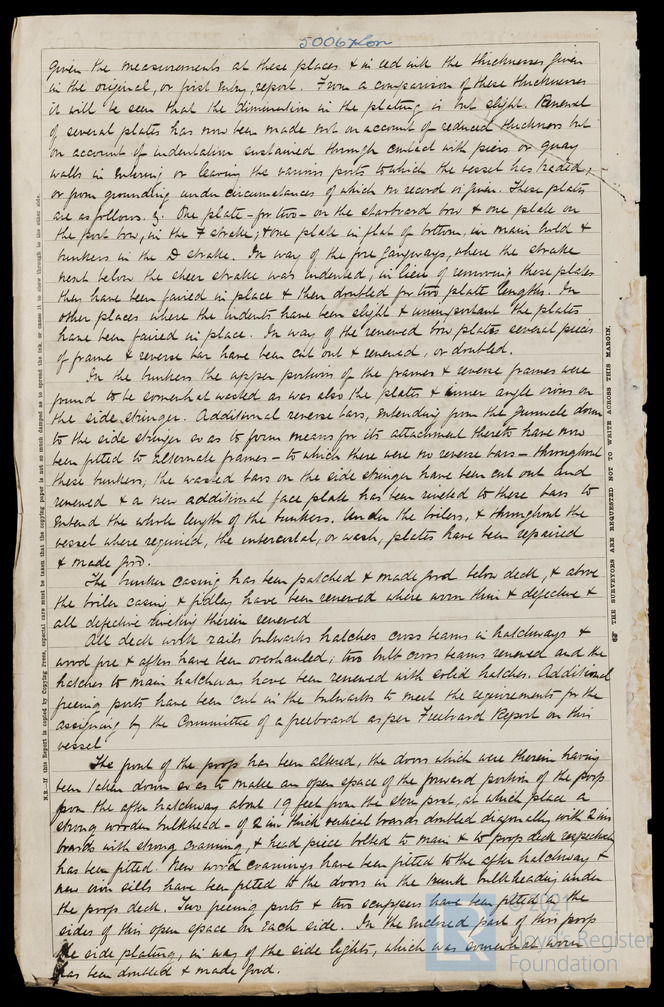 50067 Lon
given the measurements at these places & in red ink the thicknesses given
in the original, or first entry, report. From a comparison of these thicknesses
it will be seen that the diminution in the plating is but slight. Renewal
of several plates has now been made not on account of reduced thickness but
on account of indentation sustained through contact with piers or quay
walls in entering or leaving the various ports to which the vessel has traded,
or from grounding under circumstances of which no record is given. These plates
are as follows. One plate - for two - on the starboard bow & one plate on
the port bow, in the F strake, & one plate in flat of bottom, in main hold &
bunkers in the D strake. In way of the fore gangways, where the strake
next below the sheer strake was indented, in lieu of removing these plates
they have been faired in place & then doubled for two plate lengths. In
other places where the indents have been slight & unimportant the plates
have been faired in place. In way of the renewed bow plates several pieces
of frame & reverse bar have been cut out & renewed, or doubled.
In the bunkers the upper portions of the frames & reverse frames were
found to be somewhat wasted as was also the plates & inner angle irons on
the side stringer. Additional reverse bars, extending from the gunwale down
to the side stringer so as to form means for its attachment thereto have now
been fitted to alternate frames - to which there were no reverse bars - throughout
these bunkers; the wasted bars on the side stringer have been cut out and
renewed & a new additional face plate has been riveted to these bars to
extend the whole length of the bunkers. Under the boilers, & throughout the
vessel where required, the intercostal, or wash, plates have been repaired
& made good.
The bunker casing has been patched & made good below deck, & above
the boiler casing & fidley have been renewed where worn thin & defective &
all defective riveting therein renewed
All deck work rails bulwarks hatches cross beams in hatchways &
wood fore & afters have been overhauled; two bulb cross beams renewed and the
hatches to main hatchways have been renewed with solid hatches. Additional
freeing ports have been cut in the bulwarks to meet the requirements for the
assigning by the Committee of a freeboard as per Freeboard Report on this
vessel
The front of the poop has been altered, the doors which were therein having
been taken down so as to make an open space of the forward portion of the poop
from the after hatchway about 19 feet from the stern post, at which place a
strong wooden bulkhead - of 2 in thick vertical boards doubled diagonally with 2 ins
boards with strong coaming, & head piece bolted to main & to poop deck respectively
has been fitted. New wood coamings have been fitted to the after hatchway &
new iron sills have been fitted to the doors in the trunk bulkheading under
the poop deck. Two freeing ports & two scuppers have been fitted to the
sides of this open space on each side. In the enclosed part of this poop
the side plating, in way of the side lights, which was somewhat worn
has been doubled & made good.
N.B.—If this Report is copied by Copying Press, especial care must be taken that the copying paper is not so much damped as to spread the ink, or cause it to show through to the other side.
THE SURVEYORS ARE REQUESTED NOT TO WRITE ACROSS THIS MARGIN.
LR
Lloyd's Register
Foundation